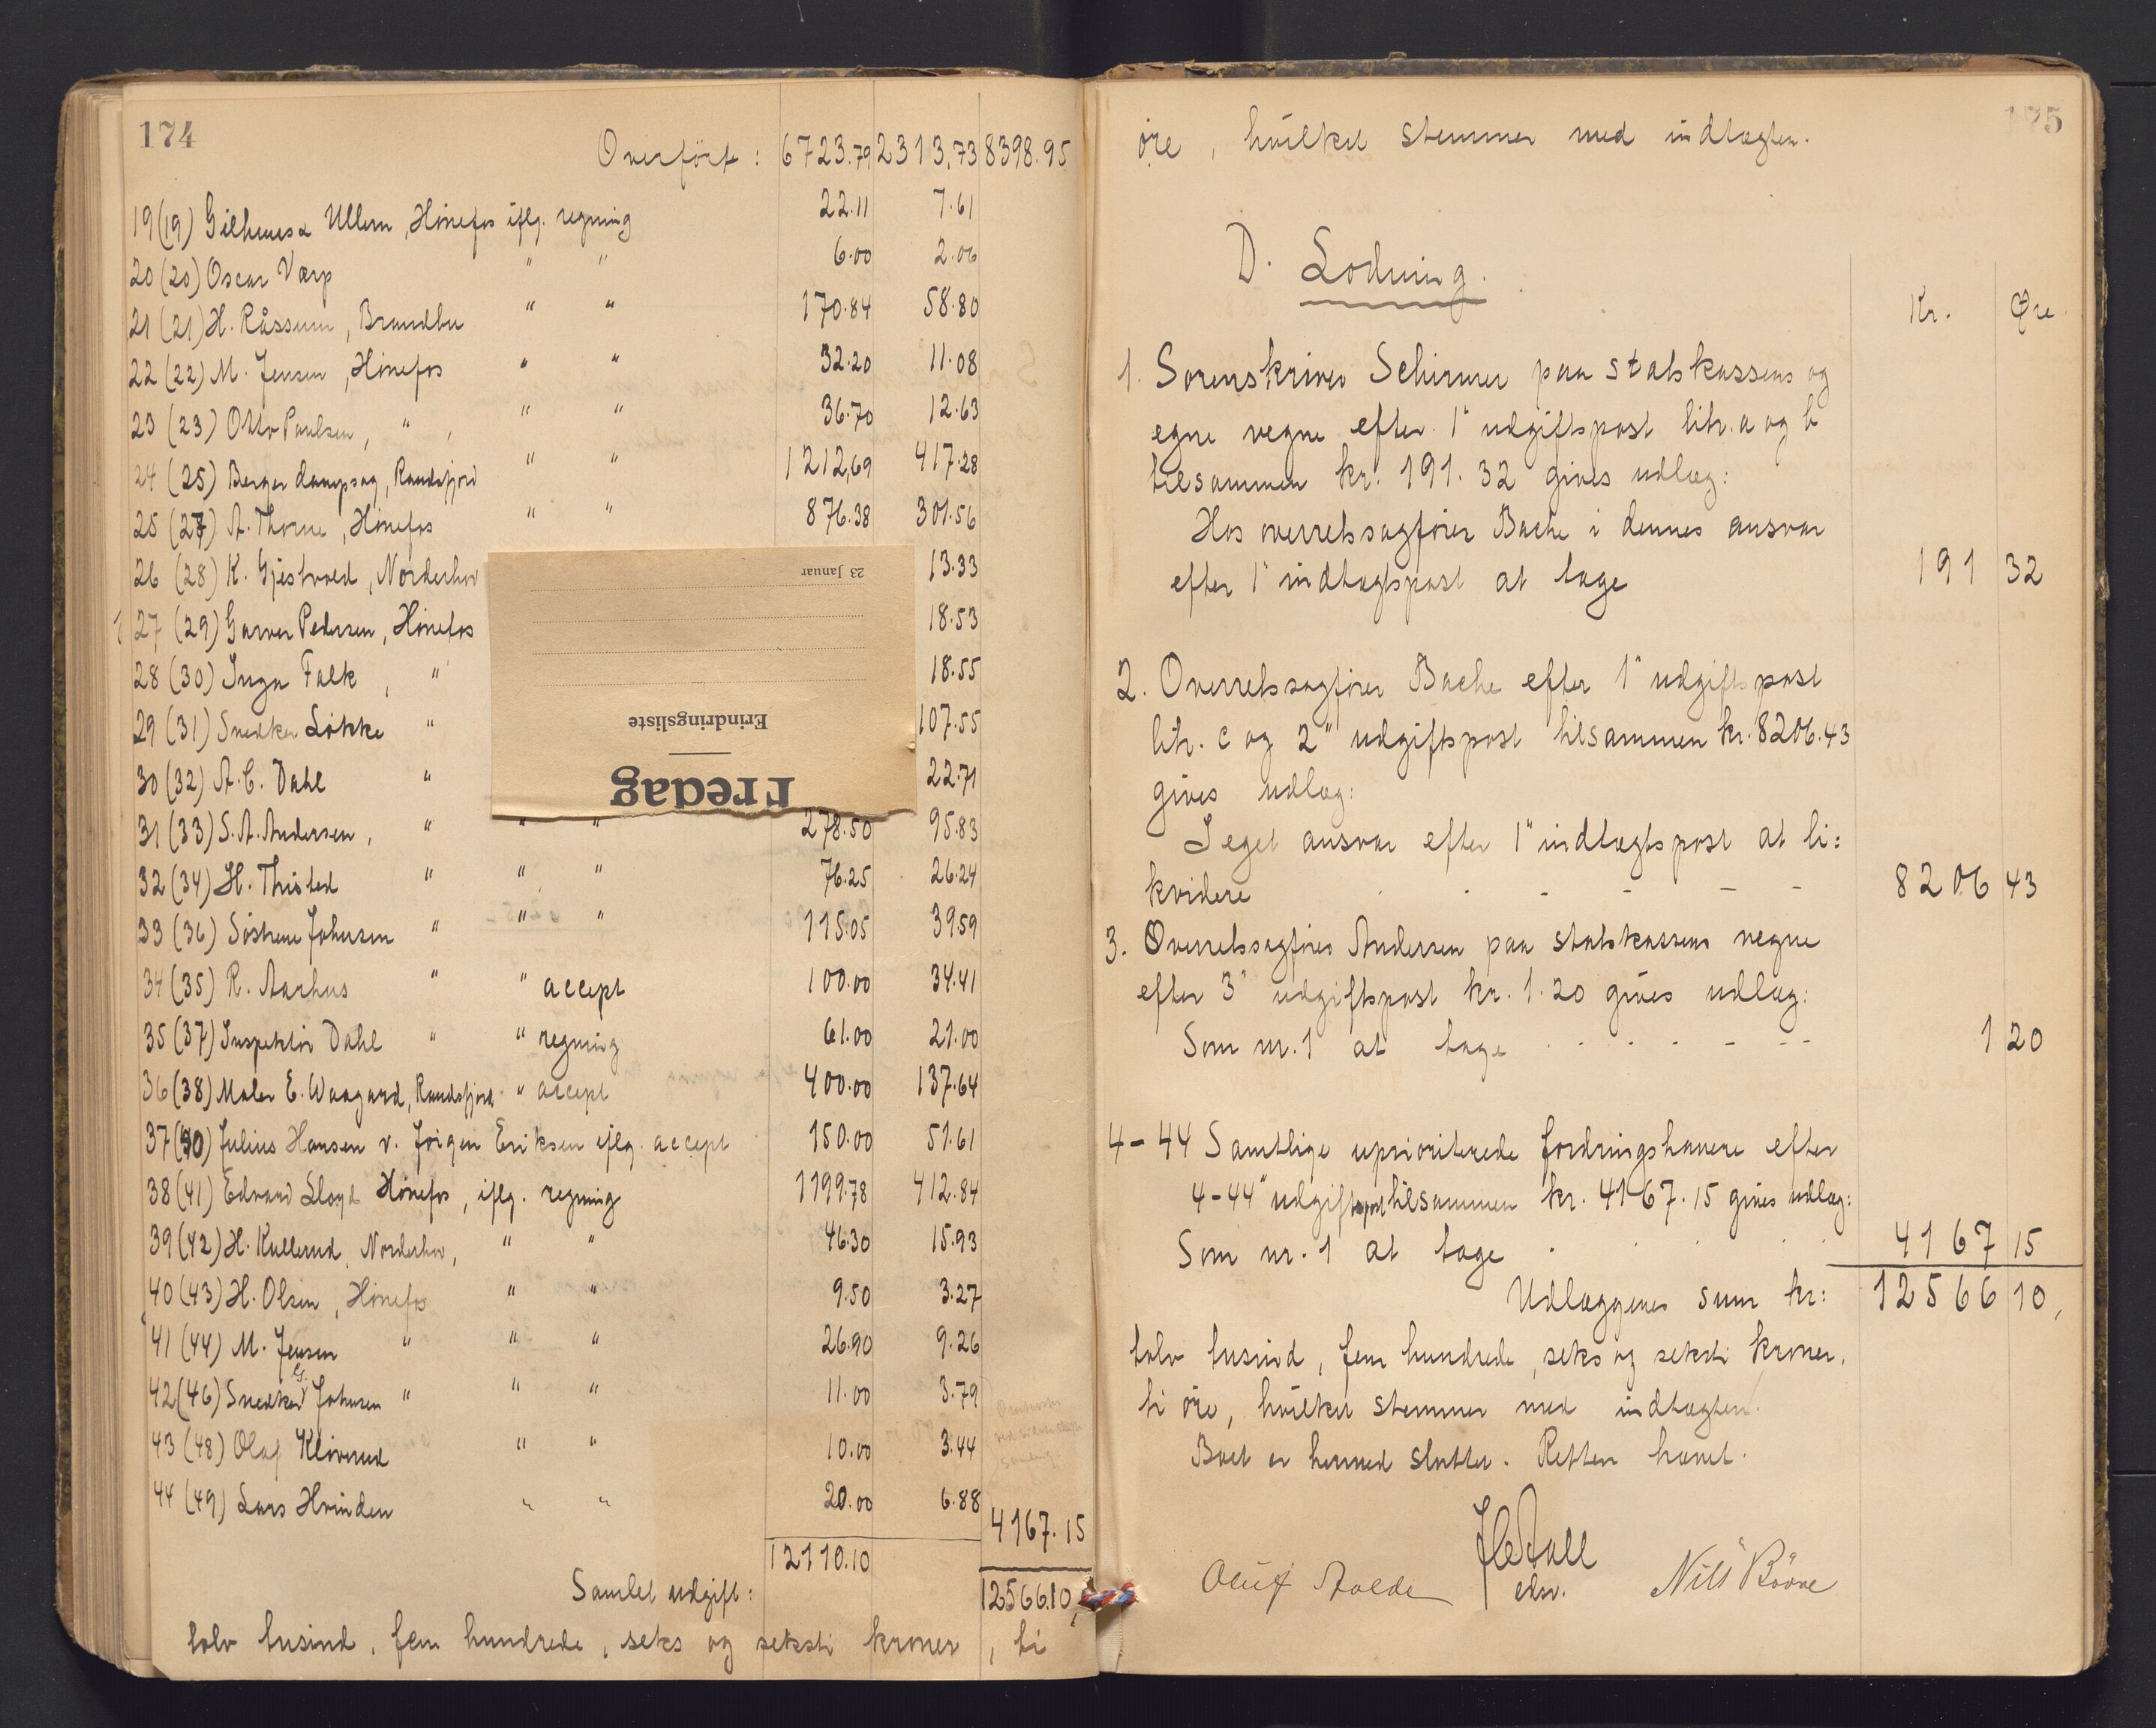 174
Overført: 6723.79 2313.73 8398.95
19 (19) Gilhuus & Ullern, Hønefos iflg. regning 22.11 7.61
20 (20) Oscar Værp " " 6.00 2.06
21 (21) H. Råssum, Brandbu " " 170.84 58.80
22 (22) M. Jensen, Hønefos " " 32.20 11.08
23 (23) Otto Paulsen, " , " " 36.70 12.63
24 (25) Berger dampsag, Randsfjord " " 1212,69 417.28
25 (27) A. Thorne, Hønefos " " 876.38 301.56
26 (28) K. Gjestvold, Norderhov 13.33
27 (29) Garver Pedersen, Hønefos 18.53
28 (30) Inga Falk, " 18.55
29 (31) Snedker Løkke " 107.55
30 (32) A. C. Dahl " 22.71
31 (33) S. A. Andersen, " " " 278.50 95.83
32 (34) H. Thisted " " " 76.25 26.24
33 (36) Søstrene Johnsen " " " 115.05 39.59
34 (35) R. Aarhus " " accept 100.00 34.41
35 (37) Inspektør Dahl " " regning 61.00 21.00
36 (38) Maler E. Waagard, Randsfjord " accept 400.00 137.64
37 (40) Julius Hansen v. Jørgen Eriksen iflg. accept 150.00 51.61
38 (41) Edvard Lloyd Hønefos, iflg. regning 1199.78 412.84
39 (42) H. Kullerud, Norderhov, " " 46.30 15.93
40 (43) H. Olsen, Hønefos " " 9.50 3.27
41 (44) M. Jensen " " " 26.90 9.26
42 (46) Snedker G. Johnsen " " " 11.00 3.79
43 (48) Olaf Kløvrud " " 10.00 3.44
44 (49) Lars Hvinden " " 20.00 6.88
4167.15
12110.10
Samlet udgift: 12566.10,
tolv tusind, fem hundrede, seks og seksti kroner, ti
23 Januar
Erindringsliste
Fredag
175
øre, hvilket stemmer med indtægten.
D. Lodning.
Kr. Øre
1. Sorenskriver Schirmer paa statskassens og
egne vegne efter 1" udgiftspost litr. a og b
tilsammen kr. 191.32 gives udlæg:
Hos overretssagfører Bache i dennes ansvar
efter 1" indtægtspost at tage 191 32
2. Overretssagfører Bache efter 1" udgiftspost
litr. c og 2" udgiftspost tilsammen kr. 8206.43
gives udlæg:
I eget ansvar efter 1" indtægtspost at li:
kvidere . . - - - - 8206 43
3. Overretssagfører Andersen paa statskassens vegne
efter 3" udgiftspost kr. 1.20 gives udlæg:
Som nr. 1 at tage . . . . - - - 1 20
4-44 Samtlige uprioriterede fordringshavere efter
4-44" udgiftspost tilsammen kr. 4167.15 gives udlæg:
Som nr. 1 at tage . . . . . 4167 15
Udlæggenes sum kr: 12566 10,
tolv tusind, fem hundrede, seks og seksti kroner,
ti øre, hvilket stemmer med indtægten.
Boet er hermed sluttet. Retten hævet.
edsv.
Oluf Aalde Nils Bøore